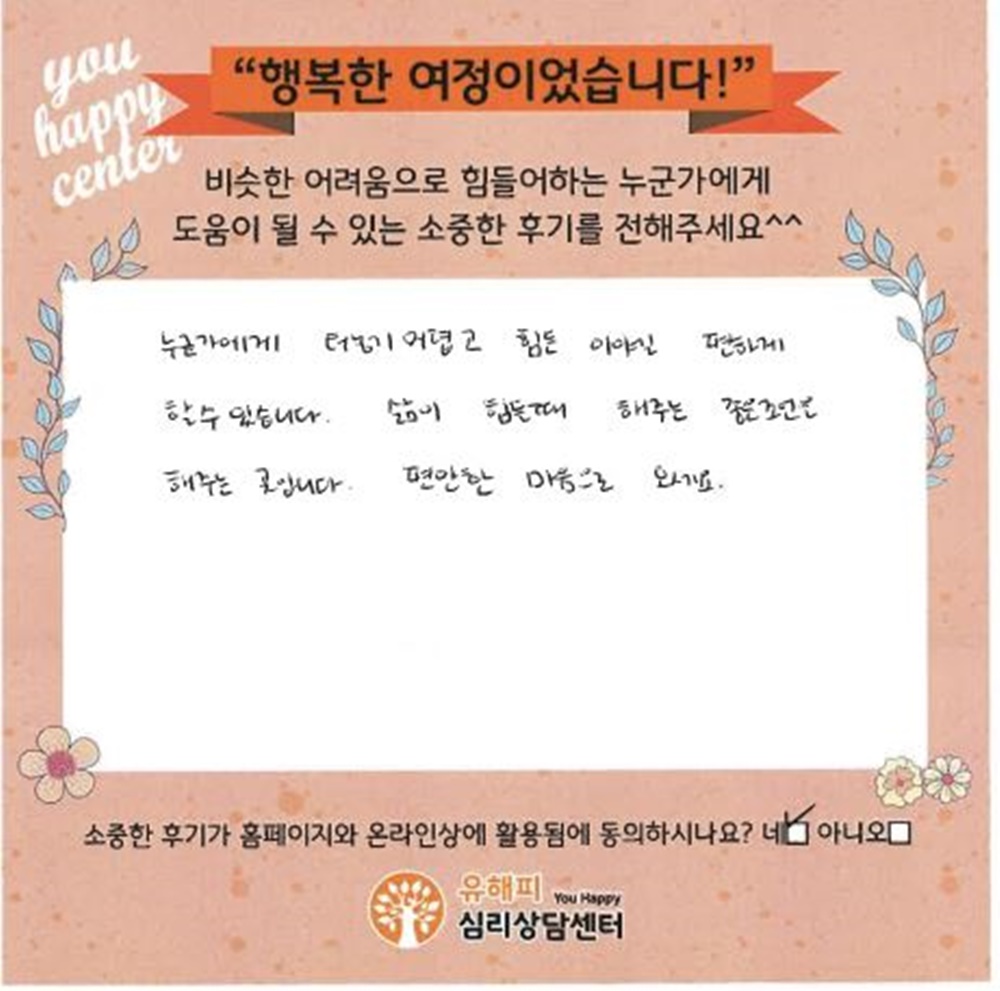 you
happy
center
“행복한 여정이었습니다!”
비슷한 어려움으로 힘들어하는 누군가에게
도움이 될 수 있는 소중한 후기를 전해주세요^^
누군가에게 터놓기 어렵고 힘든 이야길 편하게
할 수 있습니다. 삶이 힘든때 해주는 좋은조언을
해주는 곳입니다. 편안한 마음으로 오세요.
소중한 후기가 홈페이지와 온라인상에 활용됨에 동의하시나요? 네 아니오
유해피 You Happy
심리상담센터